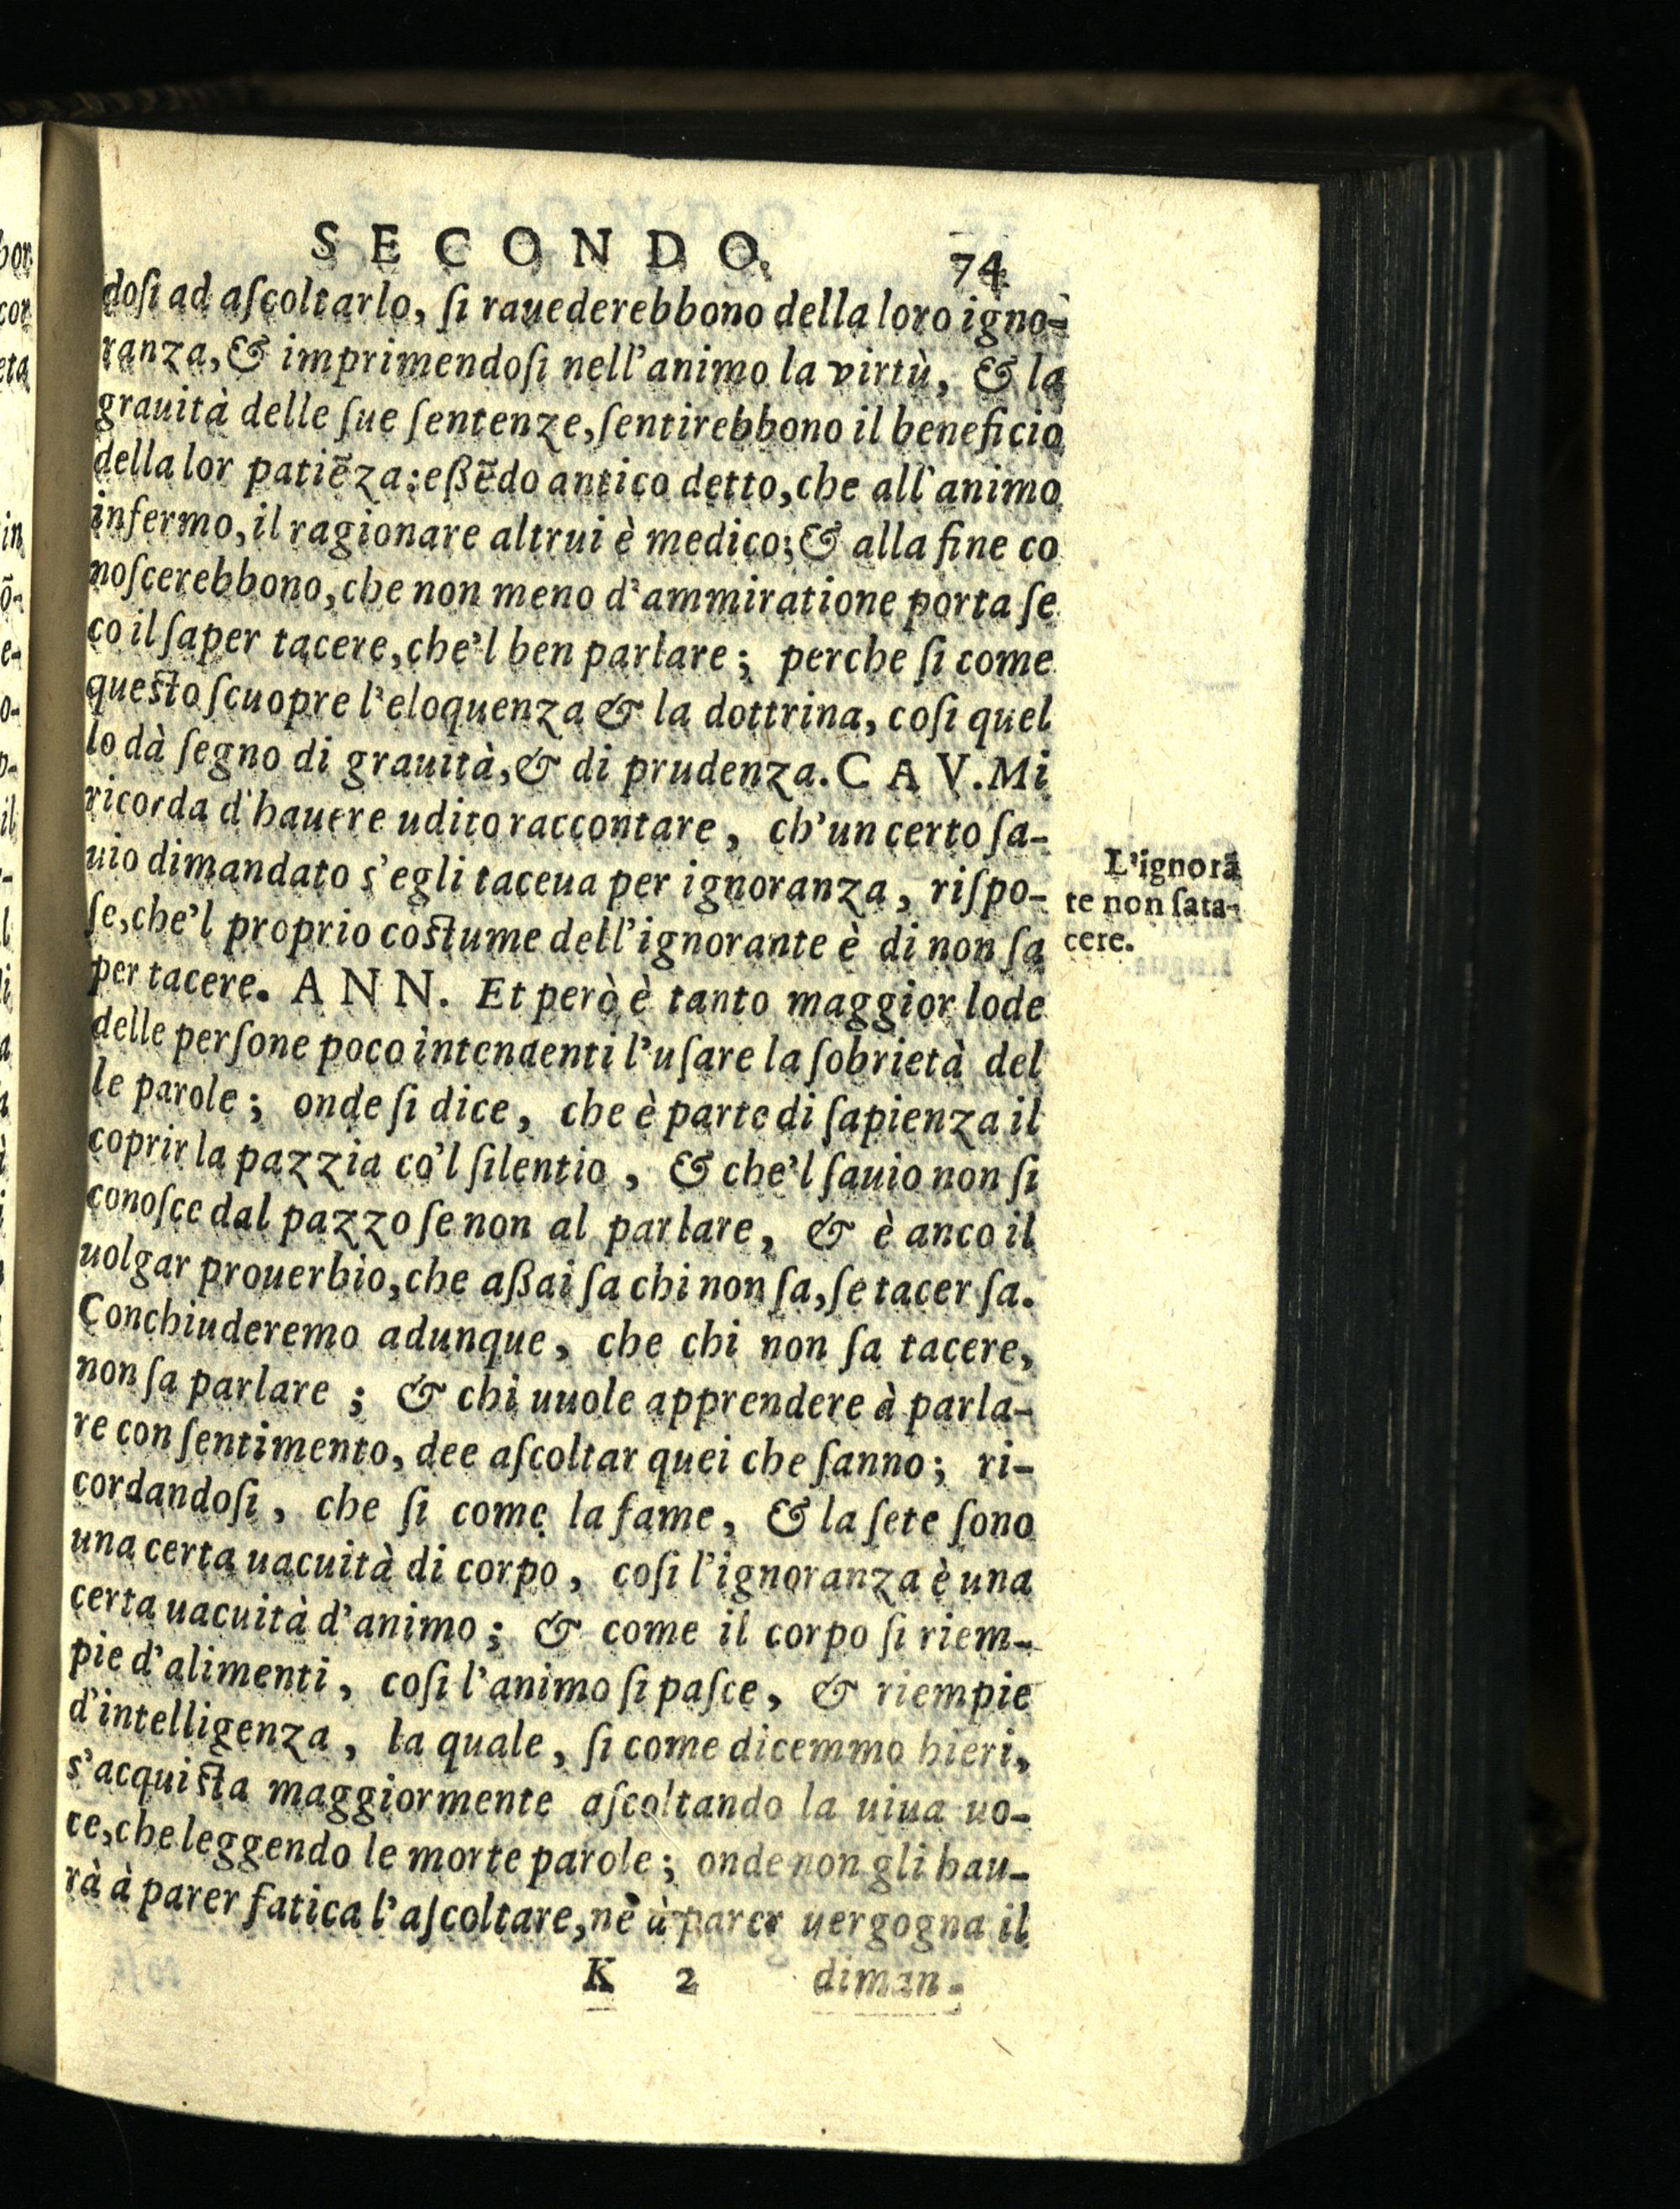 SECONDO. 74
doſi ad aſcoltarlo, ſi rauederebbono della loro igno-
ranza, & imprimendoſi nell'animo la virtù, & la
grauità delle ſue ſentenze, ſentirebbono il beneficio
della lor patiẽza: eßẽdo antico detto, che all'animo
infermo, il ragionare altrui è medico; & alla fine co
noſcerebbono, che non meno d'ammiratione porta ſe
co il ſaper tacere, che'l ben parlare; perche ſi come
queſto ſcuopre l'eloquenza & la dottrina, coſi quel
lo dà ſegno di grauità, & di prudenza. CAV. Mi
ricorda d'hauere udito raccontare, ch'un certo ſa-
uio dimandato s'egli taceua per ignoranza, riſpo-
ſe, che'l proprio coſtume dell'ignorante è di non ſa
per tacere. ANN. Et però è tanto maggior lode
delle perſone poco intendenti l'uſare la ſobrietà del
le parole; onde ſi dice, che è parte di ſapienza il
coprir la pazzia co'l ſilentio, & che'l ſauio non ſi
conoſce dal pazzo ſe non al parlare, & è anco il
uolgar prouerbio, che aßai ſa chi non ſa, ſe tacer ſa.
Conchiuderemo adunque, che chi non ſa tacere,
non ſa parlare; & chi uuole apprendere à parla-
re con ſentimento, dee aſcoltar quei che ſanno; ri-
cordandoſi, che ſi come la fame, & la ſete ſono
una certa uacuità di corpo, coſi l'ignoranza è una
certa uacuità d'animo; & come il corpo ſi riem-
pie d'alimenti, coſi l'animo ſi paſce, & riempie
d'intelligenza, la quale, ſi come dicemmo hieri,
s'acquiſta maggiormente aſcoltando la uiua uo-
ce, che leggendo le morte parole; onde non gli hau-
rà à parer fatica l'aſcoltare, nè à parer uergogna il
K 2 diman-
L'ignorã
te non ſa ta-
cere.